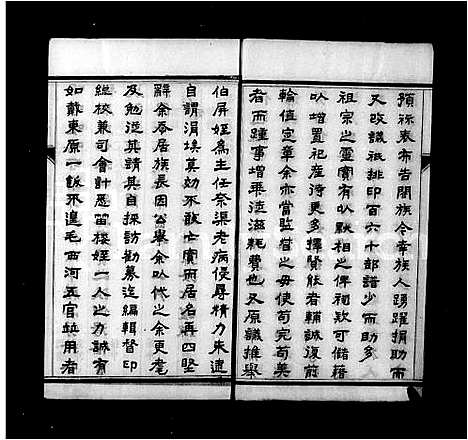 預祘表布告閤族今幸族人踴躍捐助而
又改議祇排印百六十部譜少而助多
祖宗之靈實有以默相之俾祠欵可儲藉
以增置祀產待更多擇賢能者輔誠復前
輪值定章余亦當監督之毋使苟完苟美
者而踵事增華滋耗費也又原議推舉
伯屏姪為主任奈渠老病侵尋精力未逮
自謂涓埃莫効不敢亡實而居名再四堅
辭余忝居族長因公舉余以代之余更耄
及勉從其請其自採訪勘募迄編輯督印
總校兼司會計悉笛樓姪一人之力誠有
如戴東原一訴不遑毛西河五官竝用者